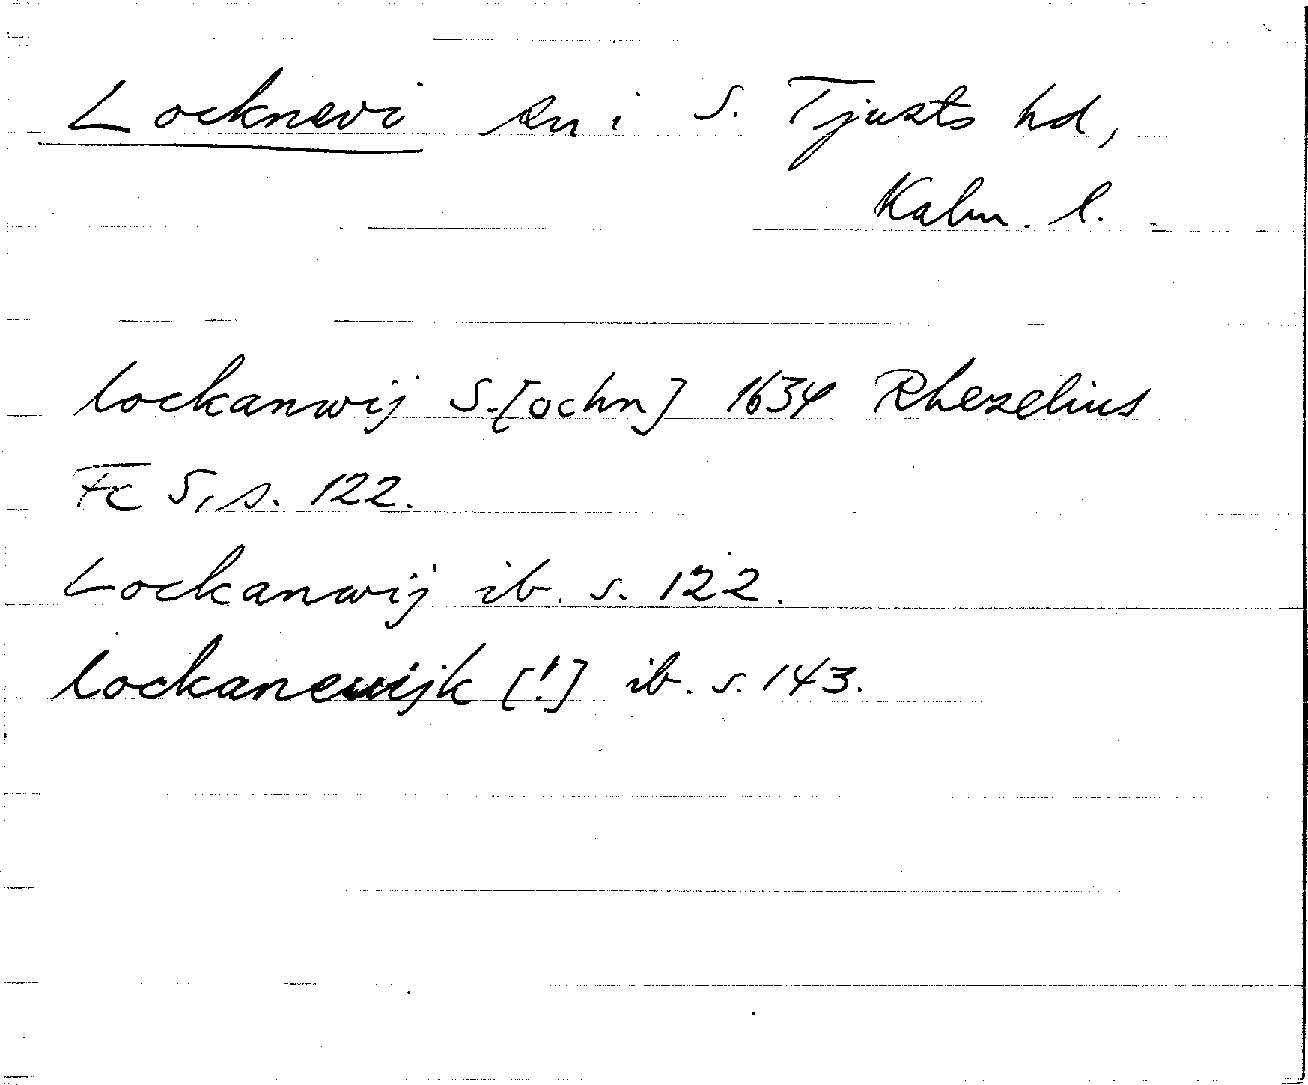 Locknevi sn i S. Tjusts hd,
Kalm. l.
lockanwij S.[ochn] 1634 Rhezelius
Fc 5, s. 122.
Lockanwij ib. s. 122.
lockanewijk [!] ib. s. 143.